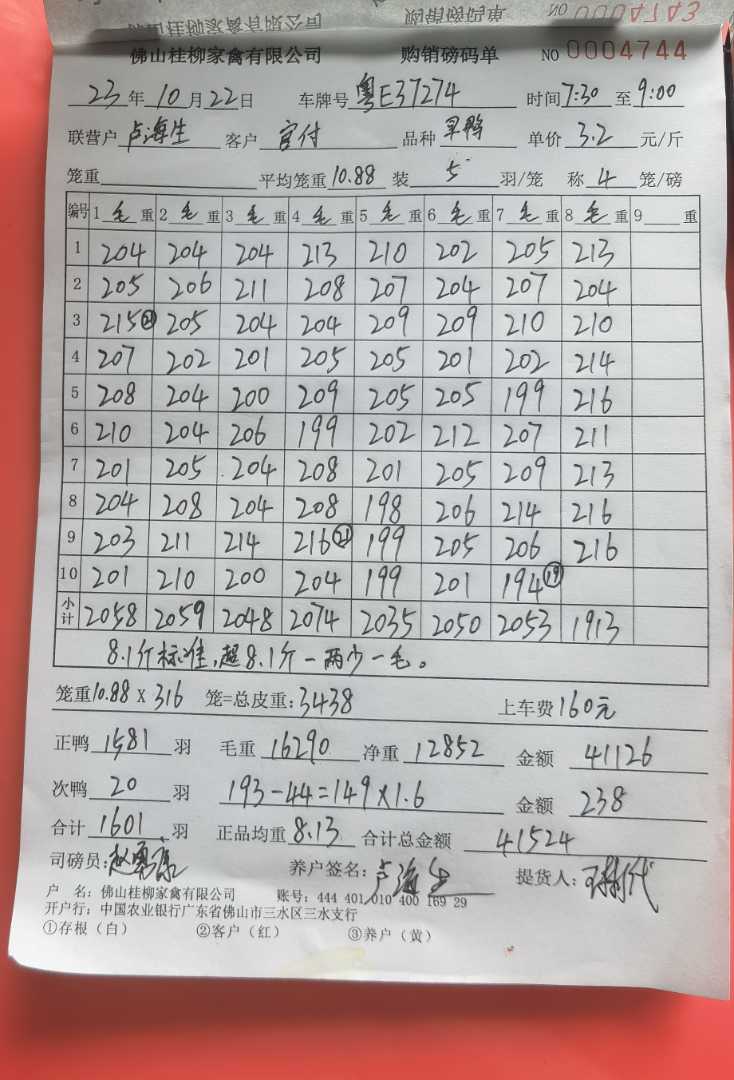 购销磅码单 NO 0004743
佛山桂柳家禽有限公司 购销磅码单 NO 0004744
23年10月22日 车牌号粤E37274 时间7:30至9:00
联营户卢海生 客户官付 品种旱鸭 单价3.2元/斤
笼重 平均笼重10.88 装5羽/笼 称4笼/磅
编号 1毛重 2毛重 3毛重 4毛重 5毛重 6毛重 7毛重 8毛重 9 重
1 204 204 204 213 210 202 205 213
2 205 206 211 208 207 204 207 204
3 215㉑ 205 204 204 209 209 210 210
4 207 202 201 205 205 201 202 214
5 208 204 200 209 205 205 199 216
6 210 204 206 199 202 212 207 211
7 201 205 204 208 201 205 209 213
8 204 208 204 208 198 206 214 216
9 203 211 214 216㉑ 199 205 206 216
10 201 210 200 204 199 201 194⑲
小计 2058 2059 2048 2074 2035 2050 2053 1913
8.1斤标准,超8.1斤一两少一毛。
笼重10.88×316 笼=总皮重:3438 上车费160元
正鸭1581羽 毛重16290 净重12852 金额41126
次鸭20羽 193-44=149×1.6 金额238
合计1601羽 正品均重8.13 合计总金额41524
司磅员: 养户签名:卢海生 提货人:
户 名:佛山桂柳家禽有限公司 账号:444 401 010 400 169 29
开户行:中国农业银行广东省佛山市三水区三水支行
①存根(白) ②客户(红) ③养户(黄)